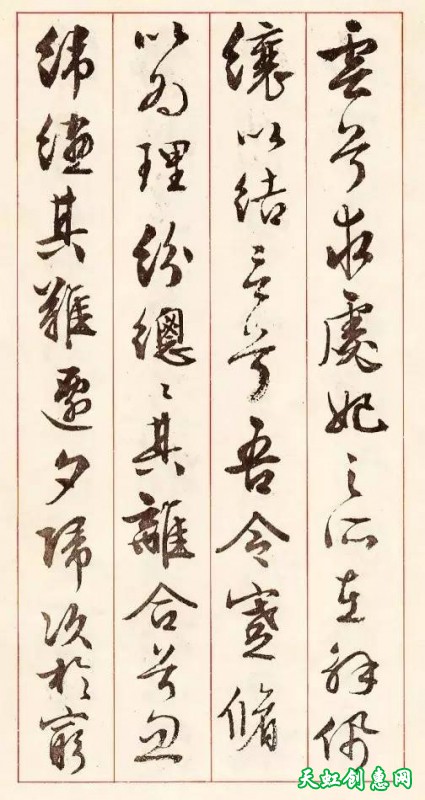 雲兮求虙妃之所在解佩
纕以結言兮吾令蹇脩
以為理紛總〻其離合兮忽
緯繣其難遷夕歸次於窮
天虹创惠网